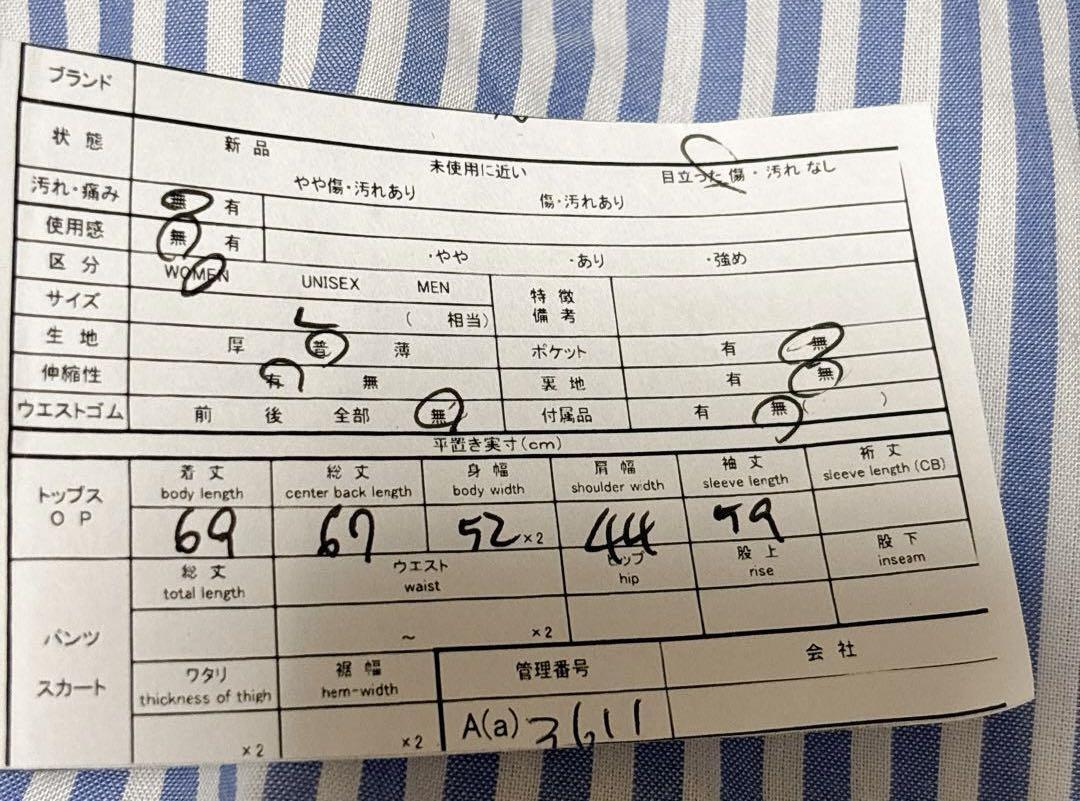 ブランド
状態 新品 未使用に近い 目立った傷・汚れなし
やや傷・汚れあり 傷・汚れあり
汚れ・痛み 無 有
使用感 無 有 ・やや ・あり ・強め
区分 WOMEN UNISEX MEN 特徴備考
サイズ L ( 相当)
生地 厚 普 薄 ポケット 有 無
伸縮性 有 無 裏地 有 無
ウエストゴム 前 後 全部 無 付属品 有 無 ( )
平置き実寸(cm)
トップス OP 着丈 総丈 身幅 肩幅 袖丈 裄丈
body length center back length body width shoulder width sleeve length sleeve length (CB)
69 67 52 ×2 44 59
総丈 ウエスト ヒップ 股上 股下
total length waist hip rise inseam
パンツ ～ ×2
スカート ワタリ 裾幅 管理番号 会社
thickness of thigh hem-width
×2 ×2 A(a) 3611